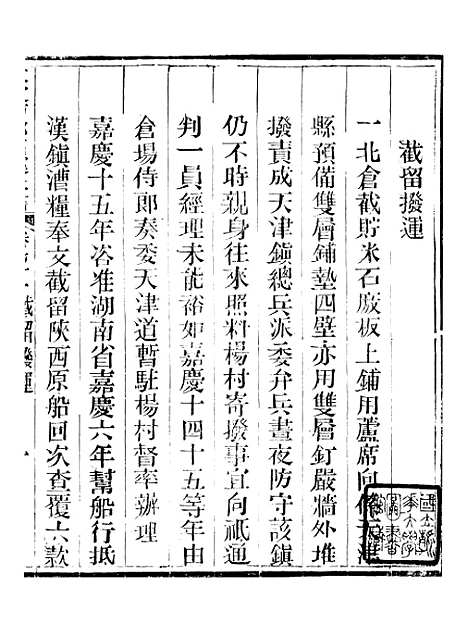 截留撥運
一北倉截貯米石廒板上鋪用蘆席向係天津
縣預備雙層鋪墊四壁亦用雙層釘嚴牆外堆
撥責成天津鎮總兵派委弁兵晝夜防守該鎮
仍不時親身往來照料楊村寄撥事宜向祇通
判一員經理未能裕如嘉慶十四十五等年由
倉場侍郎奏委天津道暫駐楊村督率辦理
嘉慶十五年咨准湖南省嘉慶六年幫船行抵
漢鎮漕糧奉文截留陝西原船回次查覆六款
截留撥運